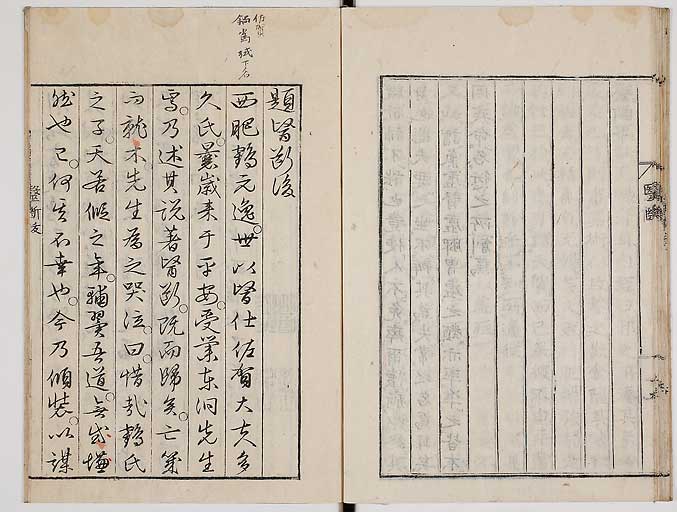 佐賀
鍋島城下名
題醫斷後
西肥鶴元逸。世以醫仕佐賀大夫多
久氏。曩歲来于平安。受業東洞先生
焉。乃述其說著醫斷。既而歸矣。亡幾
而就木先生為之哭泣。曰惜哉鶴氏
之子。天若假之年。輔翼吾道。無或慊
然也已。何其不幸也。今乃傾裝。以謀
醫斷